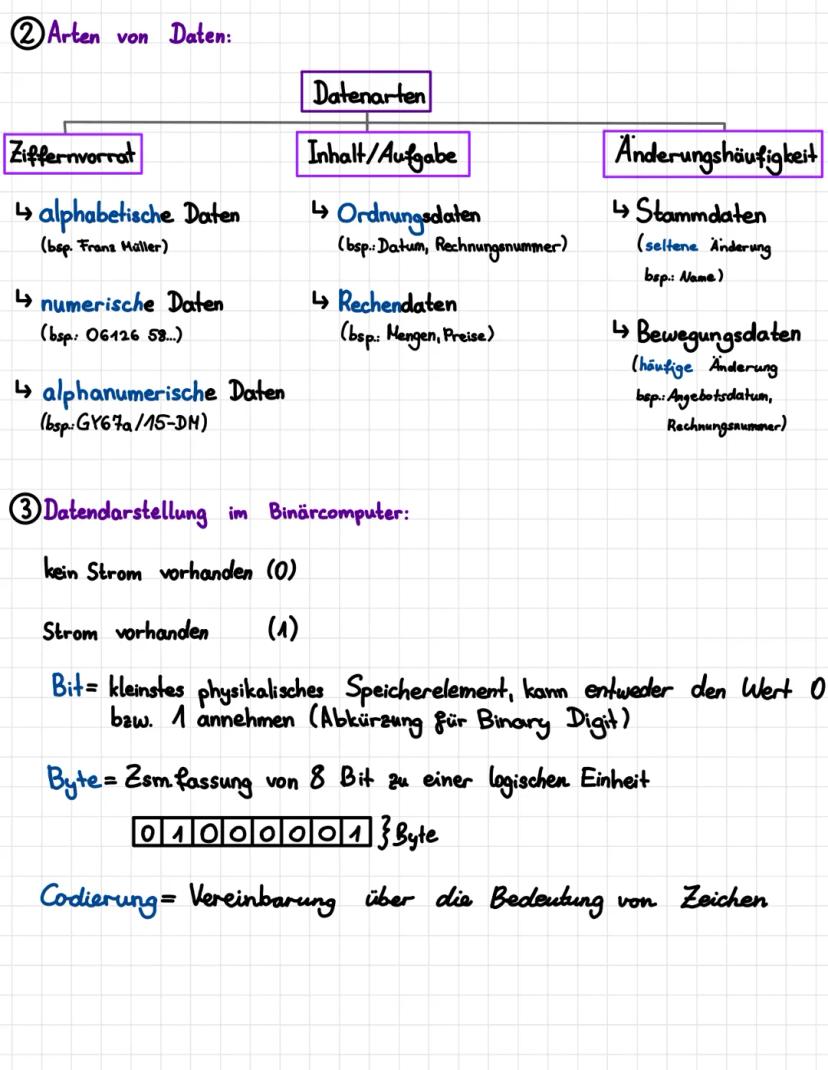 ② Arten von Daten:
Datenarten
Ziffernvorrat
Inhalt/Aufgabe
Änderungshäufigkeit
↳ alphabetische Daten
(bsp. Franz Müller)
↳ numerische Daten
(bsp.: 06126 58...)
↳ alphanumerische Daten
(bsp.: GY67a/15-DM)
↳ Ordnungsdaten
(bsp.: Datum, Rechnungsnummer)
↳ Rechendaten
(bsp.: Mengen, Preise)
↳ Stammdaten
(seltene Änderung
bsp.: Name)
↳ Bewegungsdaten
(häufige Änderung
bsp.: Angebotsdatum,
Rechnungsnummer)
③ Datendarstellung im Binärcomputer:
kein Strom vorhanden (0)
Strom vorhanden (1)
Bit = kleinstes physikalisches Speicherelement, kann entweder den Wert 0
bzw. 1 annehmen (Abkürzung für Binary Digit)
Byte = Zsmfassung von 8 Bit zu einer logischen Einheit
0 1 0 0 0 0 0 1 } Byte
Codierung = Vereinbarung über die Bedeutung von Zeichen